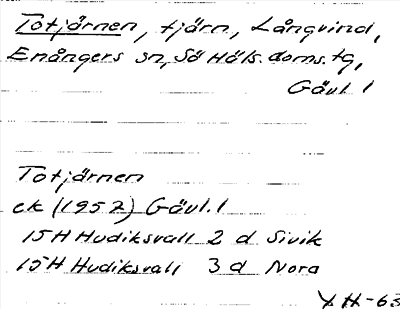 Totjärnen, tjärn, Långvind,
Enångers sn, Sö Häls. doms. tg,
Gävl. l
Totjärnen
ek (1957) Gävl. l
15H Hudiksvall 2 d Sivik
15H Hudiksvall 3 d Nora
YH-63